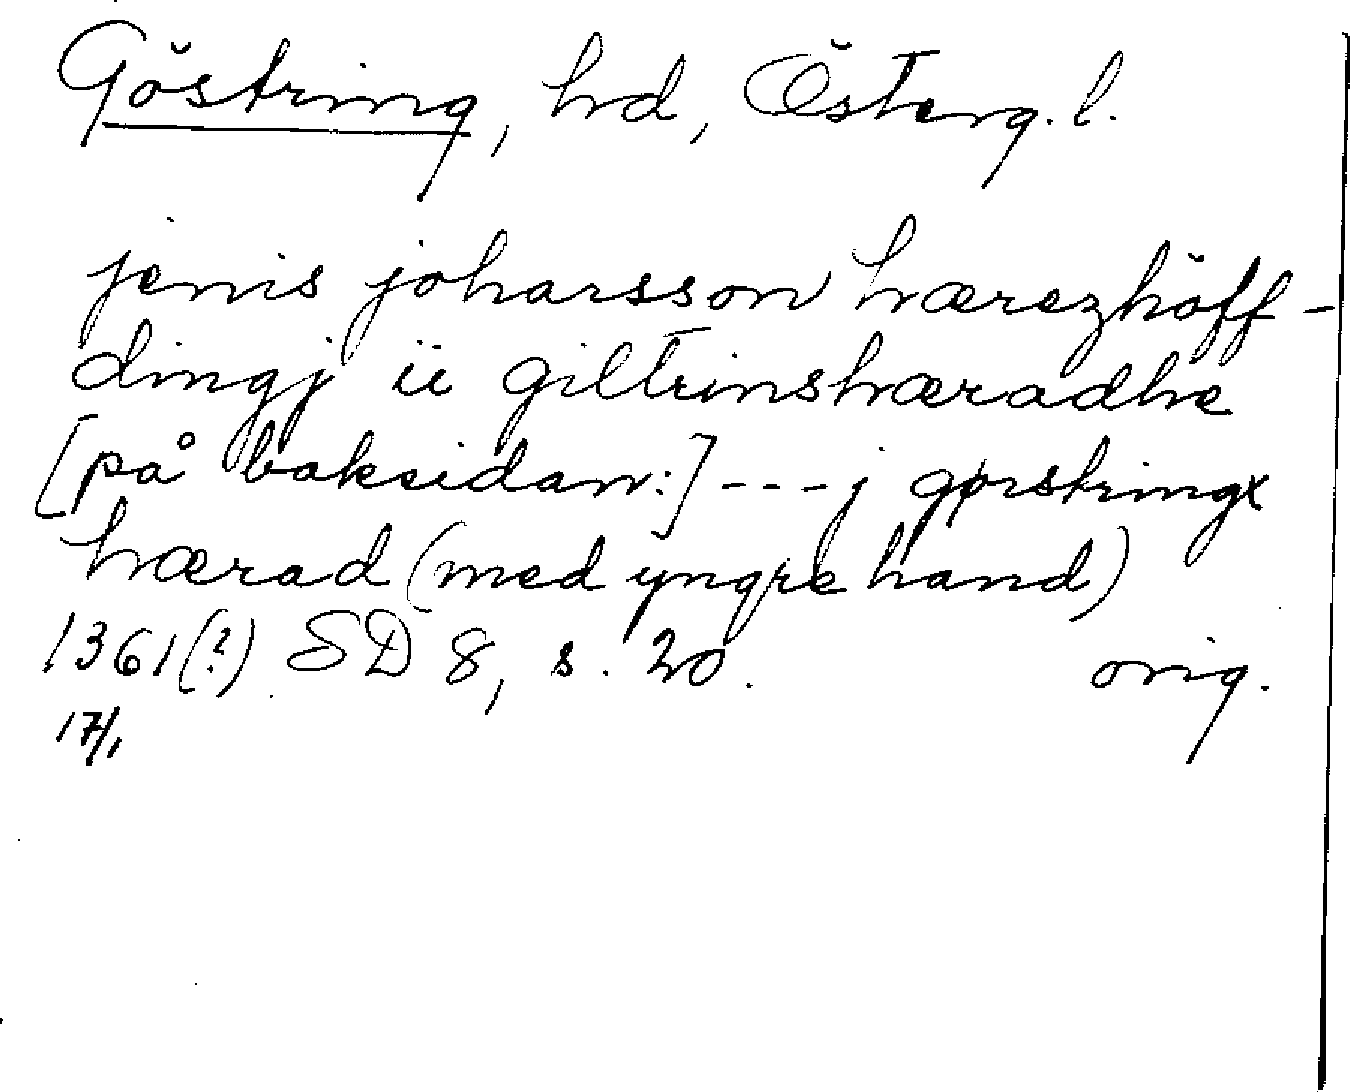 Göstring, hd, Österg. l.
jenis joharsson hærezhöff-
dingj ii giltrinshæradhe
[på baksidan:] --- j gørstringx
hærad (med yngre hand)
1361(?) SD 8, s. 20. orig.
17/1